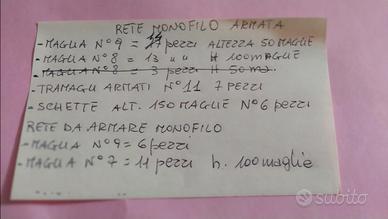 RETE MONOFILO ARMATA
- MAGLIA N°9 = 14 pezzi ALTEZZA 50 MAGLIE
- MAGLIA N°8 = 13 " " H 100 MAGLIE
- MAGLIA N°8 = 3 pezzi H 50 m.
- TRAMAGLI ARMATI N°11 7 pezzi
- SCHETTE ALT. 150 MAGLIE N°6 pezzi
RETE DA ARMARE MONOFILO
- MAGLIA N°9 = 6 pezzi
- MAGLIA N°7 = 11 pezzi h. 100 maglie
subito